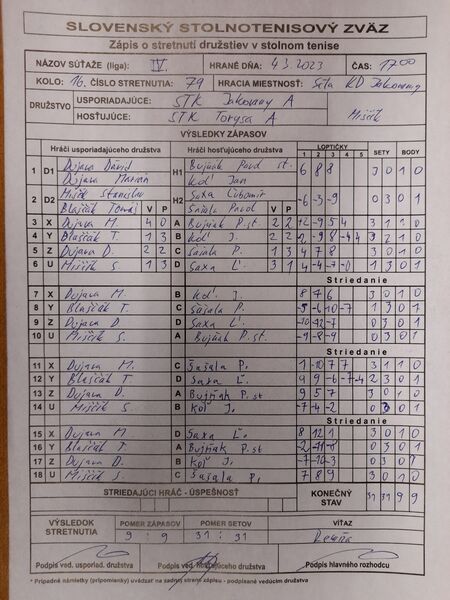 SLOVENSKÝ STOLNOTENISOVÝ ZVÄZ
Zápis o stretnutí družstiev v stolnom tenise
NÁZOV SÚŤAŽE (liga): IV. HRANÉ DŇA: 4.3.2023 ČAS: 17.00
KOLO: 16. ČÍSLO STRETNUTIA: 79 HRACIA MIESTNOSŤ: KD Jakovany
DRUŽSTVO USPORIADAJÚCE: STK Jakovany A
HOSŤUJÚCE: STK Torysa A
VÝSLEDKY ZÁPASOV
Hráči usporiadajúceho družstva Hráči hosťujúceho družstva LOPTIČKY SETY BODY
1 2 3 4 5
1 D1 Dujava Dávid H1 Bujňák Pavol st. 6 8 8 3 0 1 0
Dujava Marián Koľ Ján
2 D2 Miščík Stanislav H2 Saxa Ľubomír -6 -3 -9 0 3 0 1
Blaščák Tomáš V P Šašala Pavol V P
3 X Dujava M. 4 0 A Bujňák P. st 2 2 3 1 1 0
4 Y Blaščák T. 1 3 B Koľ J. 2 2
5 Z Dujava D. 2 2 C Šašala P. 1 3 4 7 8 3 0 1 0
6 U Miščík S. 1 3 D Saxa Ľ. 3 1 1 3 0 1
Striedanie
7 X Dujava M. B Koľ J. 8 7 6 3 0 1 0
8 Y Blaščák T. C Šašala P. 1 3 0 1
9 Z Dujava D D Saxa Ľ. -10 -12 -7 0 3 0 1
10 U Miščík S. A Bujňák P. st -9 -8 -9 0 3 0 1
Striedanie
11 X Dujava M. C Šašala P. 1 -10 7 7 3 1 1 0
12 Y Blaščák T. D Saxa Ľ. 9 9 -6 -7 -4 2 3 0 1
13 Z Dujava D. A Bujňák P. st 9 5 7 3 0 1 0
14 U Miščík S. B Koľ J. -7 -4 -2 0 3 0 1
Striedanie
15 X Dujava M. D Saxa Ľ. 8 12 1 3 0 1 0
16 Y Blaščák T. A Bujňák P. st -2 -11 -8 0 3 0 1
17 Z Dujava D. B Koľ J. -7 -10 -3 0 3 0 1
18 U Miščík S. C Šašala P. 7 8 9 3 0 1 0
STRIEDAJÚCI HRÁČ - ÚSPEŠNOSŤ KONEČNÝ STAV 31 31 9 9
VÝSLEDOK STRETNUTIA POMER ZÁPASOV POMER SETOV VÍŤAZ
9 : 9 31 : 31 Remíza
Podpis ved. usporiad. družstva Podpis ved. hosťujúceho družstva Podpis hlavného rozhodcu
* Prípadné námietky (pripomienky) uvádzať na zadnej strane zápisu - podpísané vedúcim družstva